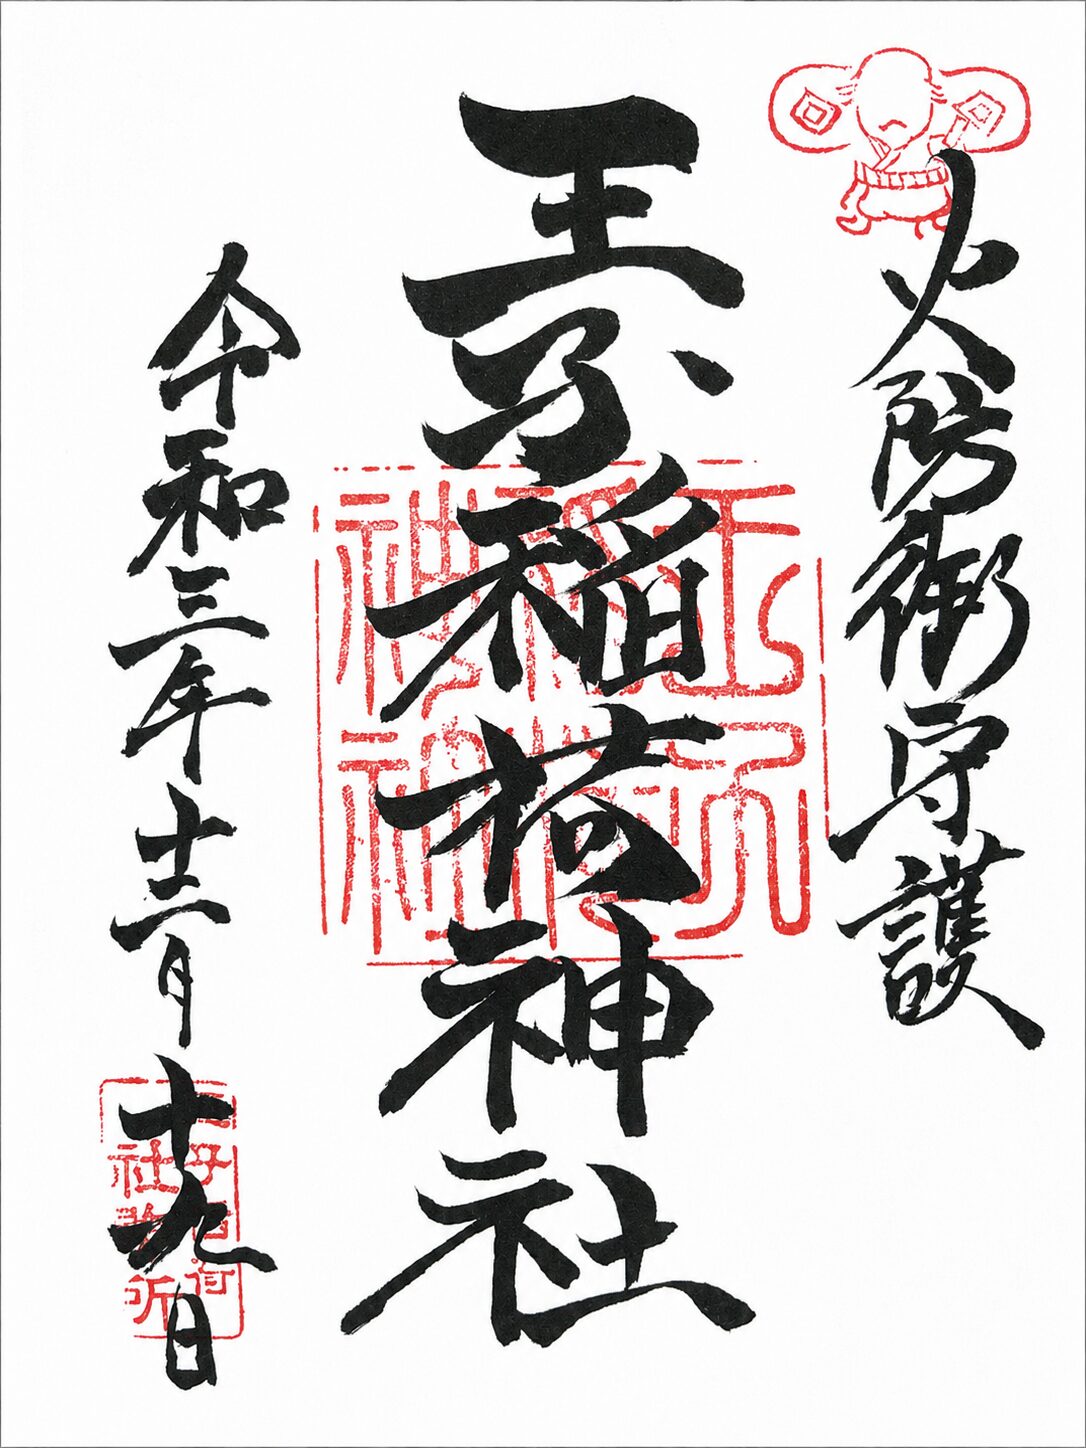 火防御守護
王子稲荷神社
令和三年十二月十九日
王子
稲荷
神社
王子稲荷
社務所